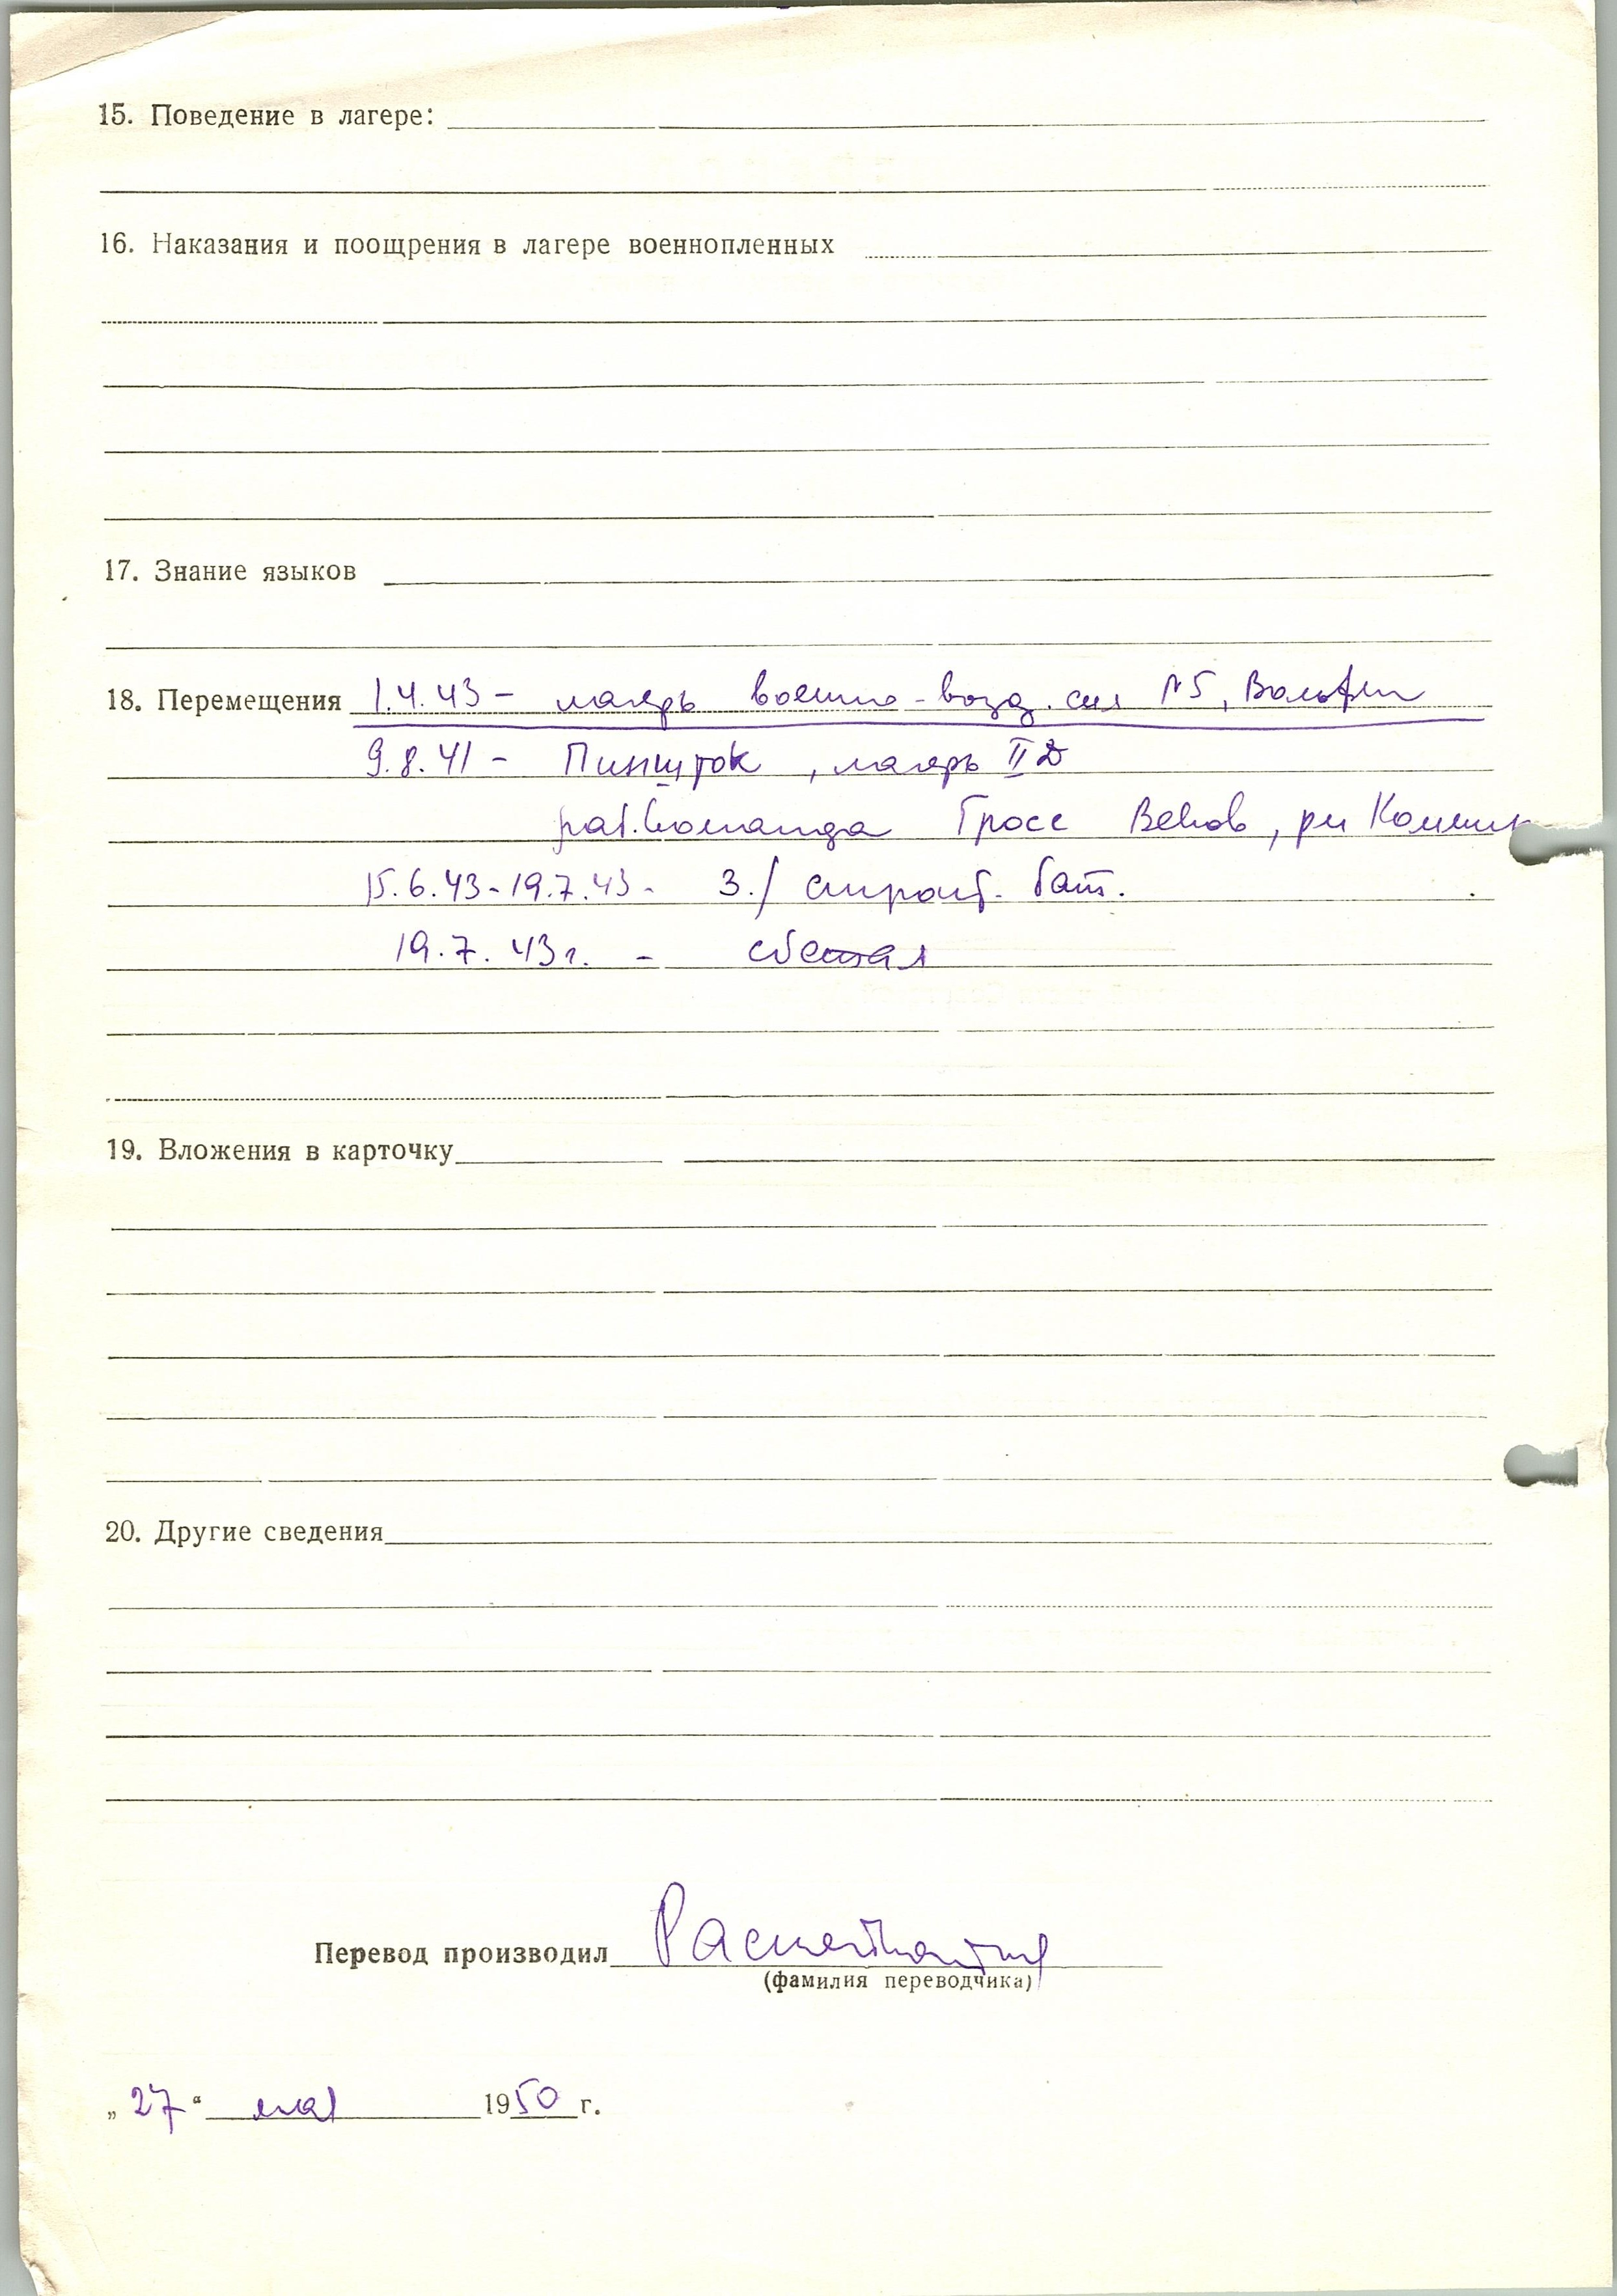 15. Поведение в лагере:
16. Наказания и поощрения в лагере военнопленных
17. Знание языков
18. Перемещения 1.4.43 – лагерь военно-возд. сил №5, Вольфен
9.8.41 – , лагерь II Д
раб. команда Гросс Веков, рн
15.6.43-19.7.43 - 3./ строит. бат.
19.7.43г. – сбежал
19. Вложения в карточку
20. Другие сведения
Перевод производил
(фамилия переводчика)
„27“ мая 1950 г.